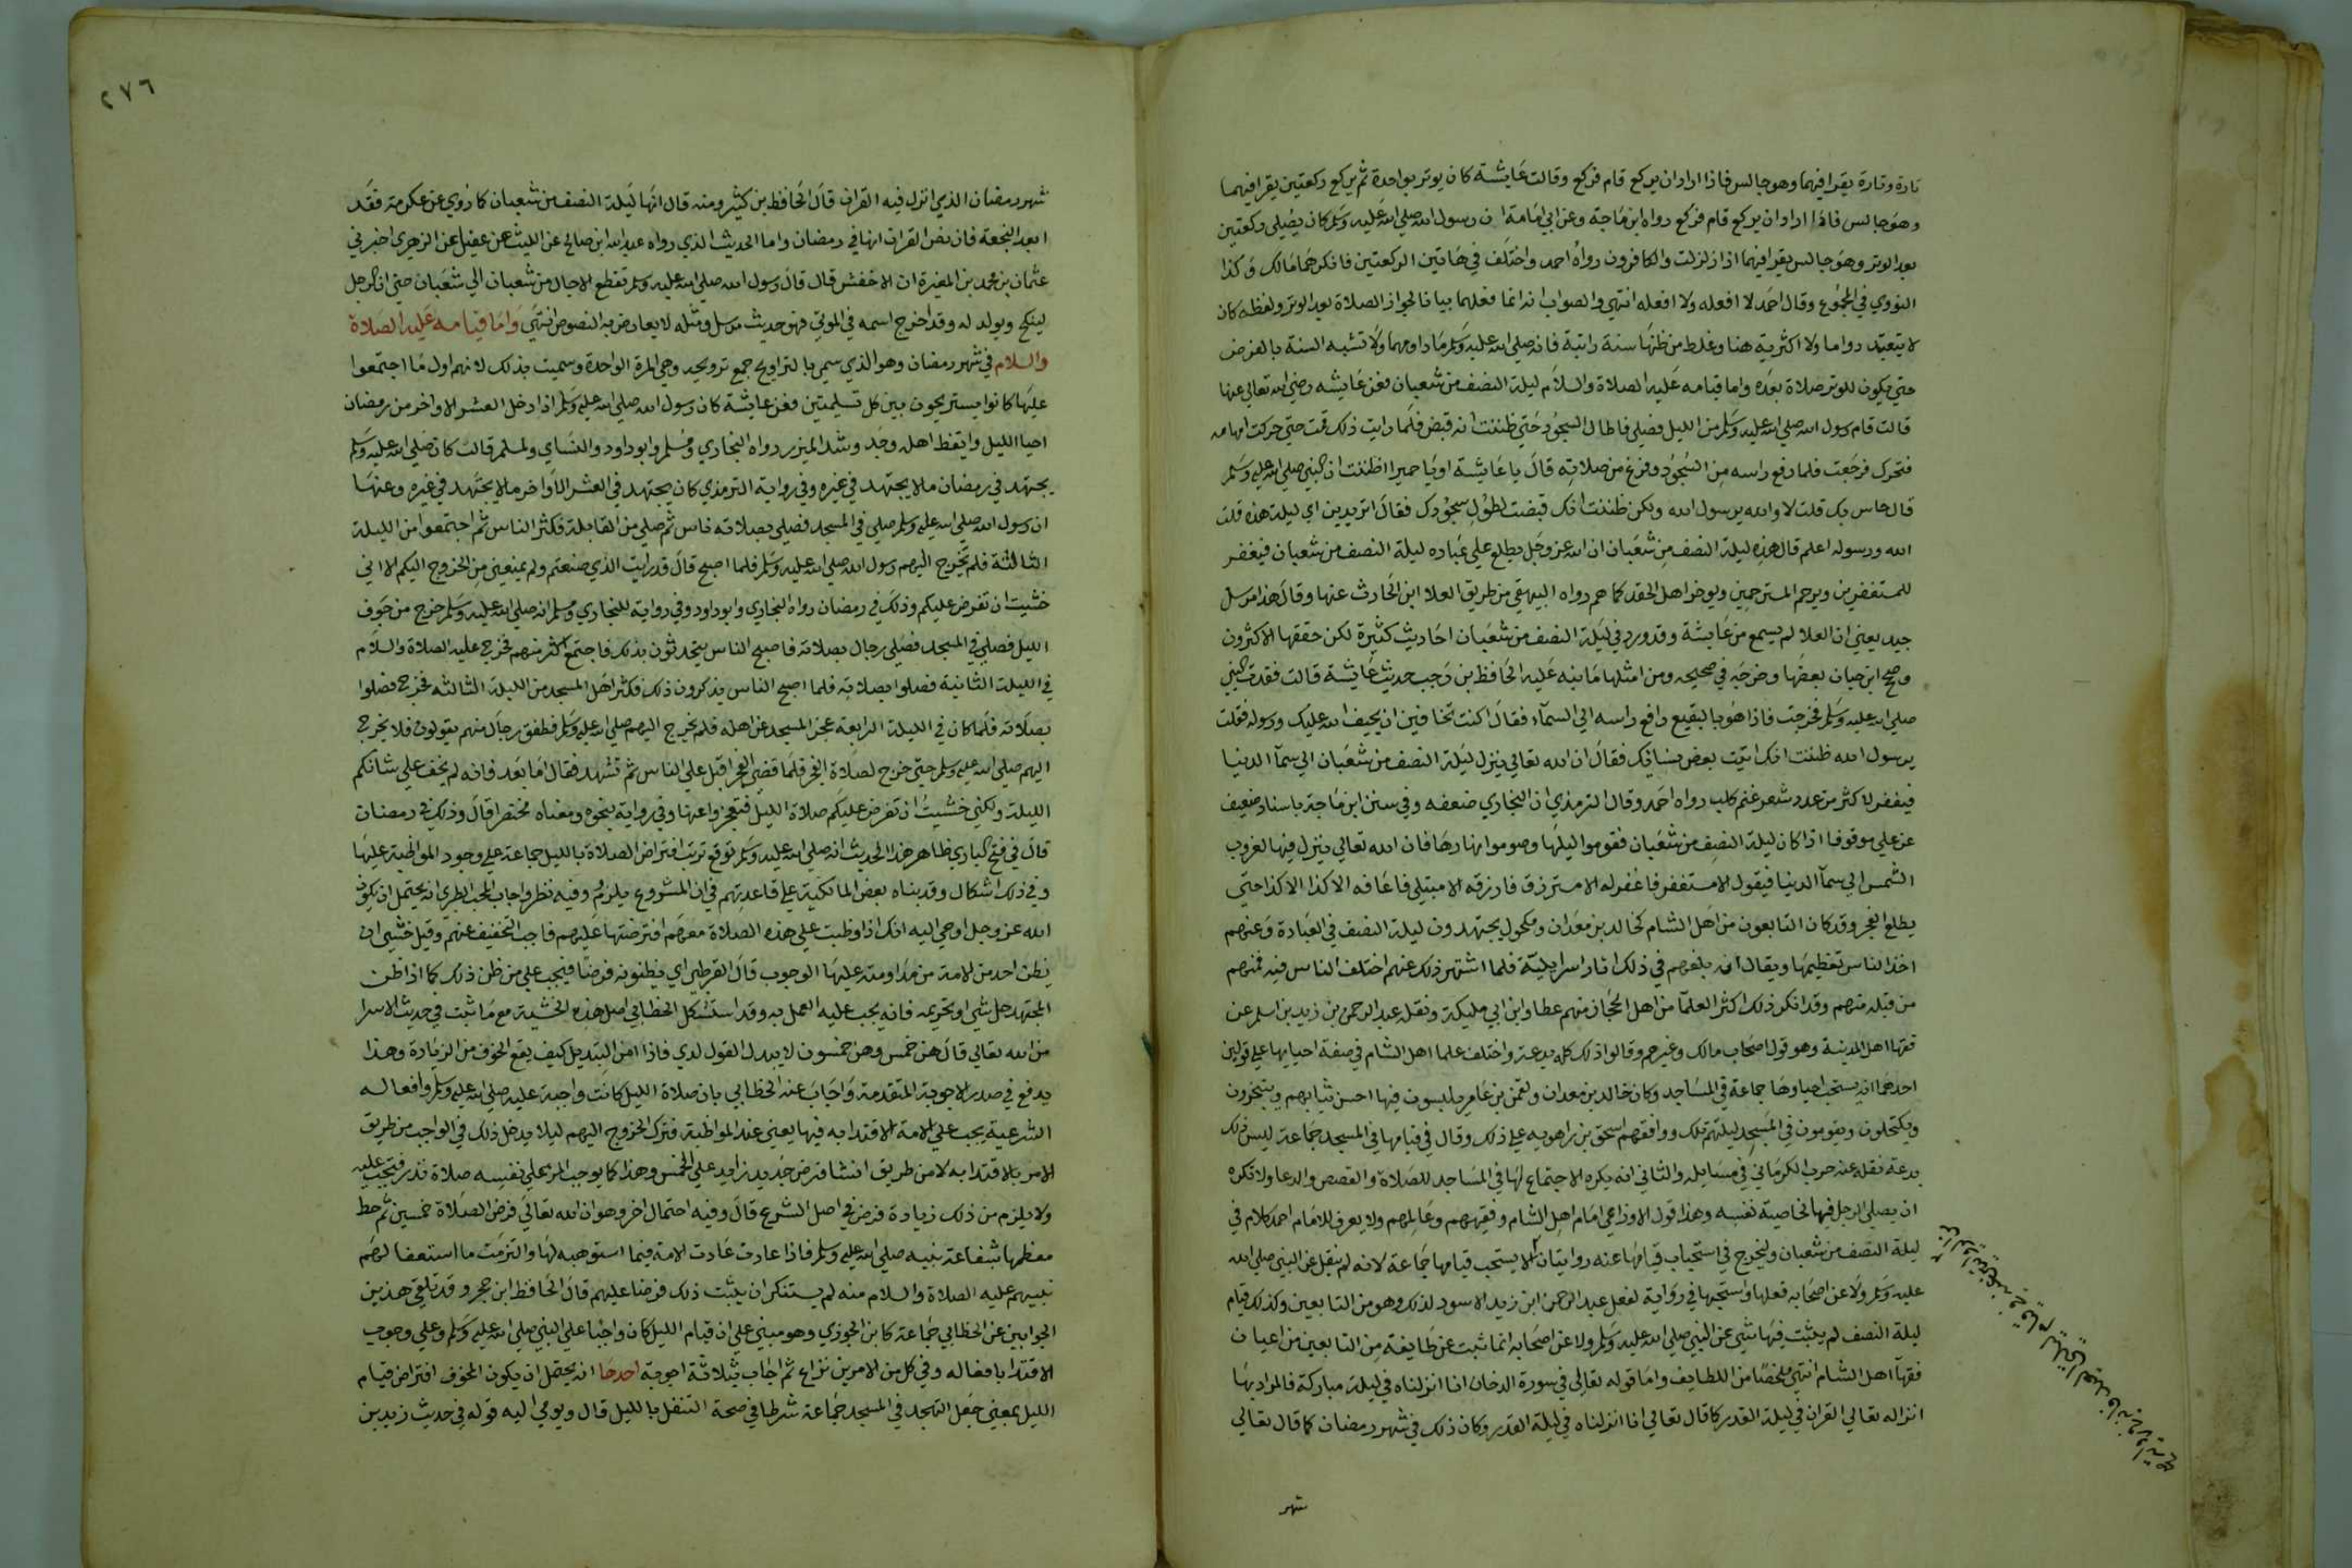 تارة وتارة يقرا فيهما وهو جالس فاذا اراد ان يركع قام فركع وقالت عايشة كان يوتر بواحدة ثم يركع ركعتين يقرا فيهما
وهو جالس فاذا اراد ان يركع قام فركع رواه ابن ماجة وعن ابي امامة ان رسول الله صلي الله عليه وسلم كان يصلي ركعتين
بعد الوتر وهو جالس يقرا فيهما اذا زلزلت والكافرون رواه احمد واختلف في هاتين الركعتين فانكرهما مالك وكذا
النووي في المجموع وقال احمد لا افعله ولا افعله انتهي والصواب انه انما فعلهما بيانا لجواز الصلاة بعد الوتر ولفظه كان
لا يتعتد دواما ولا اكثرية هنا وغلط من ظنها سنة راتبة فانه صلي الله عليه وسلم ما داومهما ولا تشبه السنة بالفرض
حتي يكون للوتر صلاة بعده واما قيامه عليه الصلاة والسلام ليلة النصف من شعبان فعن عايشه رضي الله تعالي عنها
قالت قام رسول الله صلي الله عليه وسلم من الليل فصلي فاطال السجود حتي ظننت انه قبض فلما رايت ذلك قمت حتي حركت ابهامه
فتحرك فرجعت فلما رفع راسه من السجود وفرغ من صلاته قال يا عايشة او يا حميرا اظننت ان النبي صلي الله عليه وسلم
قد خاس بك قلت لا والله يرسول الله ولكن ظننت انك قبضت لطول سجودك فقال اتريدين اي ليلة هذه قلت
الله ورسوله اعلم قال هذه ليلة النصف من شعبان ان الله عز وجل يطلع علي عباده ليلة النصف من شعبان فيغفر
للمستغفرين ويرحم المسترحمين ويوخر اهل الحقد كما هم رواه البيهقي من طريق العلا ابن الحارث عنها وقال هذا مرسل
جيد يعني ان العلا لم يسمع من عايشة وقد ورد في ليلة النصف من شعبان احاديث كثيرة لكن حققها الاكثرون
وصحح ابن حبان بعضها وخرجه في صحيحه ومن امثلها ما نبه عليه الحافظ بن رجب حديث عايشة قالت فقدت النبي
صلي الله عليه وسلم فخرجت فاذا هو بالبقيع رافع راسه الي السمآء فقال اكنت تخافين ان يحيف الله عليك ورسوله فقلت
يرسول الله ظننت انك اتيت بعض نسائك فقال ان الله تعالي ينزل ليلة النصف من شعبان الي سمآ الدنيا
فيغفر لاكثر من عدد شعر غنم كلب رواه احمد وقال الترمذي ان البخاري ضعفه وفي سنن ابن ماجة باسناد ضعيف
عن علي موقوفا اذا كان ليلة النصف من شعبان فقوموا ليلها وصوموا نهارها فان الله تعالي ينزل فيها لغروب
الشمس الي سمآ الدنيا فيقول الا مستغفر فاغفر له الا مسترزق فارزقه الا مبتلي فاعافه الا كذا الا كذا حتي
يطلع الفجر وقد كان التابعون من اهل الشام كخالد بن معدان ومكحول يجتهدون ليلة النصف في العبادة وعنهم
اخذ الناس تعظيمها ويقال انه بلغهم في ذلك اثار اسرايلية فلما اشتهر ذلك عنهم اختلف الناس فيه فمنهم
من قبله منهم وقد انكر ذلك اكثر العلمآ من اهل الحجاز منهم عطا وابن ابي مليكة ونقله عبد الرحمن بن زيد بن اسلم عن
فقها اهل المدينة وهو قول اصحاب مالك وغيرهم وقالوا ذلك كله بدعة واختلف علما اهل الشام في صفة احيايها علي قولين
احدهما انه يستحب احياوها جماعة في المساجد وكان خالد بن معدان ولقمن بن عامر يلبسون فيها احسن ثيابهم ويتبخرون
ويكتحلون ويقومون في المسجد ليلتهم تلك ووافقهم اسحق بن راهويه علي ذلك وقال في قيامها في المسجد جماعة ليس ذلك
بدعة نقله عنه حرب الكرماني في مسايله والثاني انه يكره الاجتماع لها في المساجد للصلاة والقصص والدعا ولا تكره
ان يصلي الرجل فيها لخاصية نفسه وهذا قول الاوزاعي امام اهل الشام وفقيههم وعالمهم ولا يعرف للامام احمد كلام في
ليلة النصف من شعبان ويخرج في استحباب قيامها عنه روايتان الا يستحب قيامها جماعة لانه لم ينقل عن النبي صلي الله
عليه وسلم ولا عن اصحابه فعلها واستحبها في رواية لفعل عبد الرحمن ابن زيد الاسود لذلك وهو من التابعين وكذلك قيام
ليلة النصف لم يثبت فيها شي عن النبي صلي الله عليه وسلم ولا عن اصحابه انما ثبت عن طايفة من التابعين من اعيان
فقهآ اهل الشام انتهي ملخصا من اللطايف واما قوله تعالي في سورة الدخان انا انزلناه في ليلة مباركة فالمراد بها
انزاله تعالي القران في ليلة القدر كا قال تعالي انا انزلناه في ليلة القدر وكان ذلك في شهر رمضان كما قال تعالي
شهر
٢٧٦
شهر رمضان الذي انزل فيه القران قال الحافظ بن كثير ومنه قال انها ليلة النصف من شعبان كا روي عن عكرمة فقد
ابعد النجعة فان نص القران انها في رمضان واما الحديث الذي رواه عبد الله ابن صالح عن الليث عن عقيل عن الزهري اخبرني
عثمان بن محمد بن المغيرة ان الاخفش قال قال رسول الله صلي الله عليه وسلم تقطع الاجال من شعبان الي شعبان حتي ان الرجل
لينكح ويولد له وقد اخرج اسمه في الموتي فهو حديث مرسل ومثله لا يعارض به النصوص انتهي واما قيامه عليه الصلاة
والسلام في شهر رمضان وهو الذي سمي بالتراويح جمع ترويحه وهي المرة الواحدة وسميت بذلك لانهم اول ما اجتمعوا
عليها كانوا يستريحون بين كل تسليمتين فعن عايشة كان رسول الله صلي الله عليه وسلم اذا دخل العشر الاواخر من رمضان
احيا الليل وايقظ اهله وجد وشد الميزر رواه البخاري ومسلم وابو داود والنساي ولمسلم قالت كان صلي الله عليه وسلم
يجتهد في رمضان ما لا يجتهد في غيره وفي رواية الترمذي كان يجتهد في العشر الاواخر ما لا يجتهد في غيره وعنها
ان رسول الله صلي الله عليه وسلم صلي في المسجد فصلي بصلاته ناس ثم صلي من القابلة فكثر الناس ثم اجتمعوا من الليلة
الثالثة فلم يخرج اليهم رسول الله صلي الله عليه وسلم فلما اصبح قال قد رايت الذي صنعتم ولم يمنعني من الخروج اليكم الا اني
خشيت ان تفرض عليكم وذلك في رمضان رواه البخاري وابو داود وفي رواية للبخاري ومسلم انه صلي الله عليه وسلم خرج من جوف
الليل فصلي في المسجد فصلي رجال بصلاته فاصبح الناس يتحدثون بذلك فاجتمع اكثر منهم فخرج عليه الصلاة والسلام
في الليلة الثانية فصلوا بصلاته فلما اصبح الناس يذكرون ذلك فكثر اهل المسجد من الليلة الثالثه فخرج فصلوا
بصلاته فلما كان في الليلة الرابعة عجز المسجد عن اهله فلم يخرج اليهم صلي الله عليه وسلم فطفق رجال منهم يقولون فلا يخرج
اليهم صلي الله عليه وسلم حتي خرج لصلاة الفجر فلما قضي الفجر اقبل علي الناس ثم تشهد فقال اما بعد فانه لم يخف علي شانكم
الليلة ولكني خشيت ان تفرض عليكم صلاة الليل فتعجزوا عنها وفي رواية بنحوه ومعناه مختصرا قال وذلك في رمضان
قال في فتح الباري ظاهر هذا الحديث انه صلي الله عليه وسلم توقع ترتب افتراض الصلاة بالليل جماعة علي وجود المواظبة عليها
وفي ذلك اشكال وقد بناه بعض المالكية علي قاعدتهم في ان المشروع يلزم وفيه نظر واجاب المحب الطبري انه يحتمل ان يكون
الله عز وجل اوحي اليه انك اذا وظبت علي هذه الصلاة معهم افترضتها عليهم فاحب التخفيف عنهم وقيل خشي ان
يظن احد من الامة من مداومته عليها الوجوب قال القرطبي اي فيظنونه فرضا فيجب علي من ظن ذلك كما اذا ظن
المجتهد حل شي او تحريمه فانه يجب عليه العمل به وقد استشكل الخطابي اصل هذه الخشية مع ما ثبت في حديث الاسرا
من الله تعالي قال هن خمس وهن خمسون لا يبدل القول لدي فاذا امن التبديل كيف يقع الخوف من الزيادة وهذا
يدفع في صدر الاجوبة المتقدمة واجاب عنه الخطابي بان صلاة الليل كانت واجبة عليه صلي الله عليه وسلم وافعاله
الشرعية يجب علي الامة الاقتدا به فيها يعني عند المواظبة فترك الخروج اليهم ليلا يدخل ذلك في الواجب من طريق
الامر بالاقتدا به لا من طريق انشا فرض جديد زايد علي الخمس وهذا كما يوجب المر علي نفسه صلاة نذر فتجب عليه
ولا يلزم من ذلك زيادة فرض في اصل الشرع قال وفيه احتمال اخر وهو ان الله تعالي فرض الصلاة خمسين ثم حط
معظمها شفاعة نبيه صلي الله عليه وسلم فاذا عادت عادت الامة فيما استوهبه لها والتزمت ما استعفا لهم
نبيهم عليه الصلاة والسلام منه لم يستنكر ان يثبت ذلك فرضا عليهم قال الحافظ ابن حجر وقد تلقي هذين
الجوابين عن الخطابي جماعة كابن الجوزي وهو مبني علي ان قيام الليل كان واجبا علي النبي صلي الله عليه وسلم وعلي وجوب
الاقتدا بافعاله وفي كل من الامرين نزاع ثم اجاب بثلاثة اجوبة احدها انه يحتمل ان يكون المخوف افتراض قيام
الليل بمعني جعل التهجد في المسجد جماعة شرطا في صحة التنفل بالليل قال ويومي اليه قوله في حديث زيد بن